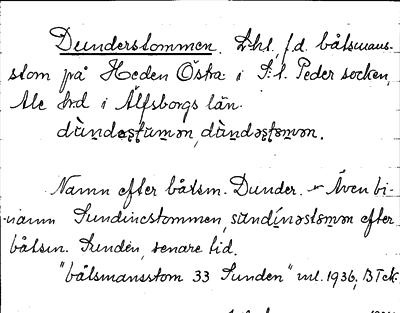 Dunderstommen. Lht, f.d. båtsmans-
stom på Heden Östra i S:t. Peder socken,
Ale hrd i Älfsborgs län.
dùndəʂtùmən, dùndəʂtomən.
Namn efter båtsm. Dunder. – Även bi-
namn Sundinstommen, sundínəstomən efter
båtsm. Sundén, senare tid.
"båtsmansstom 33 Sunden" ml. 1936, BTek.